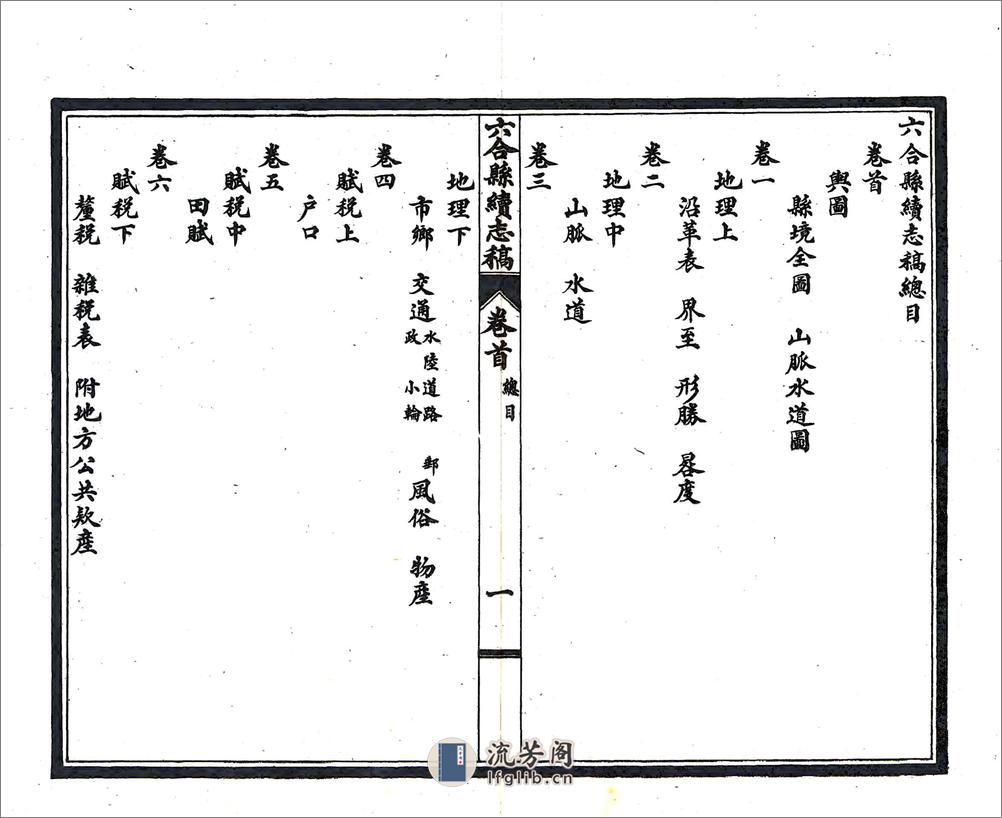 六合縣續志稿總目
卷首
輿圖
縣境全圖　山脈水道圖
卷一
地理上
沿革表　界至　形勝　晷度
卷二
地理中
山脈　水道
卷三
六合縣續志稿　卷首　總目　一
地理下
市鄉　交通水陸道路　郵政　小輪　風俗　物產
卷四
賦稅上
戶口
卷五
賦稅中
田賦
卷六
賦稅下
釐稅　雜稅表　附地方公共款產
流芳阁
lfglib.cn